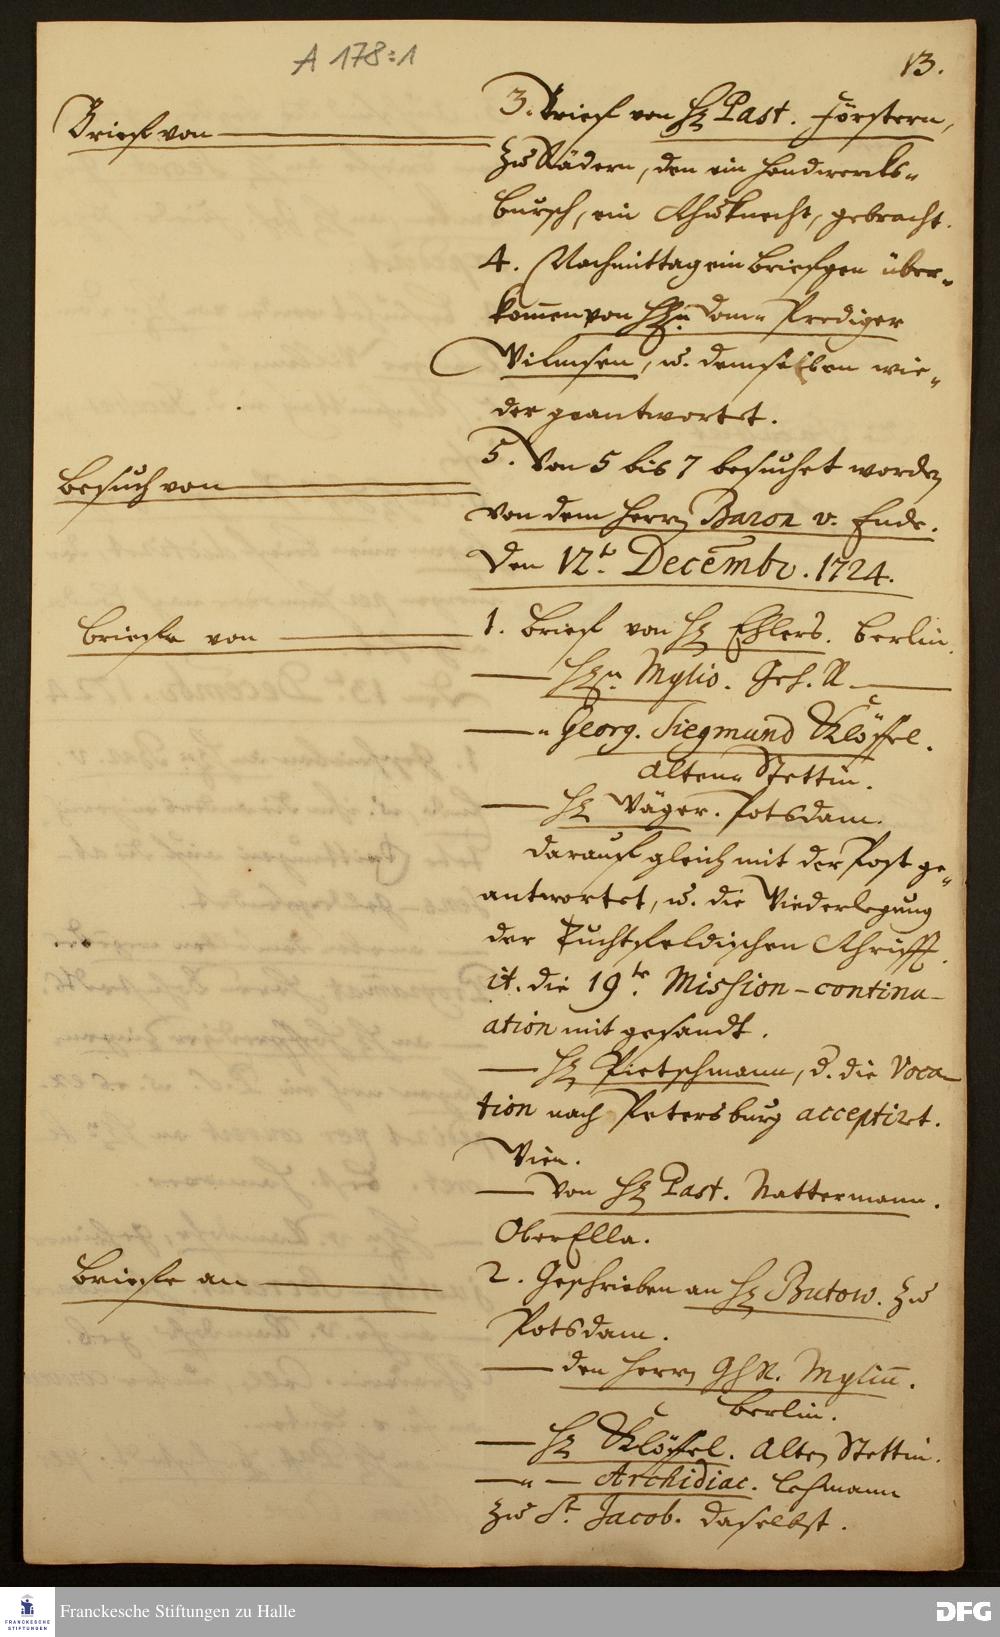 A 178:1
13.
Brief von
3. Brief von H. Past. Förstern,
zu Rädern, den ein Handwercks-
bursch, ein Schuknecht, gebracht.
4. Nachmittag ein briefgen über-
kommen von HEn. Dom- Prediger
Vilmsen, u. demselben wie-
der geantwortet.
Besuch von
5. Von 5 bis 7 besuchet worden
von dem Herrn Baron v. Ende.
Den 12t. Decembr. 1724.
Briefe von
1. Brief von H. Ehlers. Berlin.
HEn. Mylio. Geh. R.
" Georg. Siegmund Klöffel.
Alten- Stettin.
H. Väger. Potsdam.
darauf gleich mit der Post ge-
antwortet, u. die Wiederlegung
der Tuchtfeldischen Schrifft.
it. die 19te. Mission-continu-
ation mit gesandt.
H. Pietschmann, d. die Voca-
tion nach Petersburg acceptirt.
Wien.
von H. Past. Nattermann.
OberElla.
Briefe an
2. Geschrieben an H. Butow. zu
Potsdam.
den Herrn GhR. Mylium.
Berlin.
H. Klöffel. Alten Stettin.
" Archidiac. Lehmann
zu St. Jacob. daselbst.
FRANCKESCHE
STIFTUNGEN
Franckesche Stiftungen zu Halle
DFG